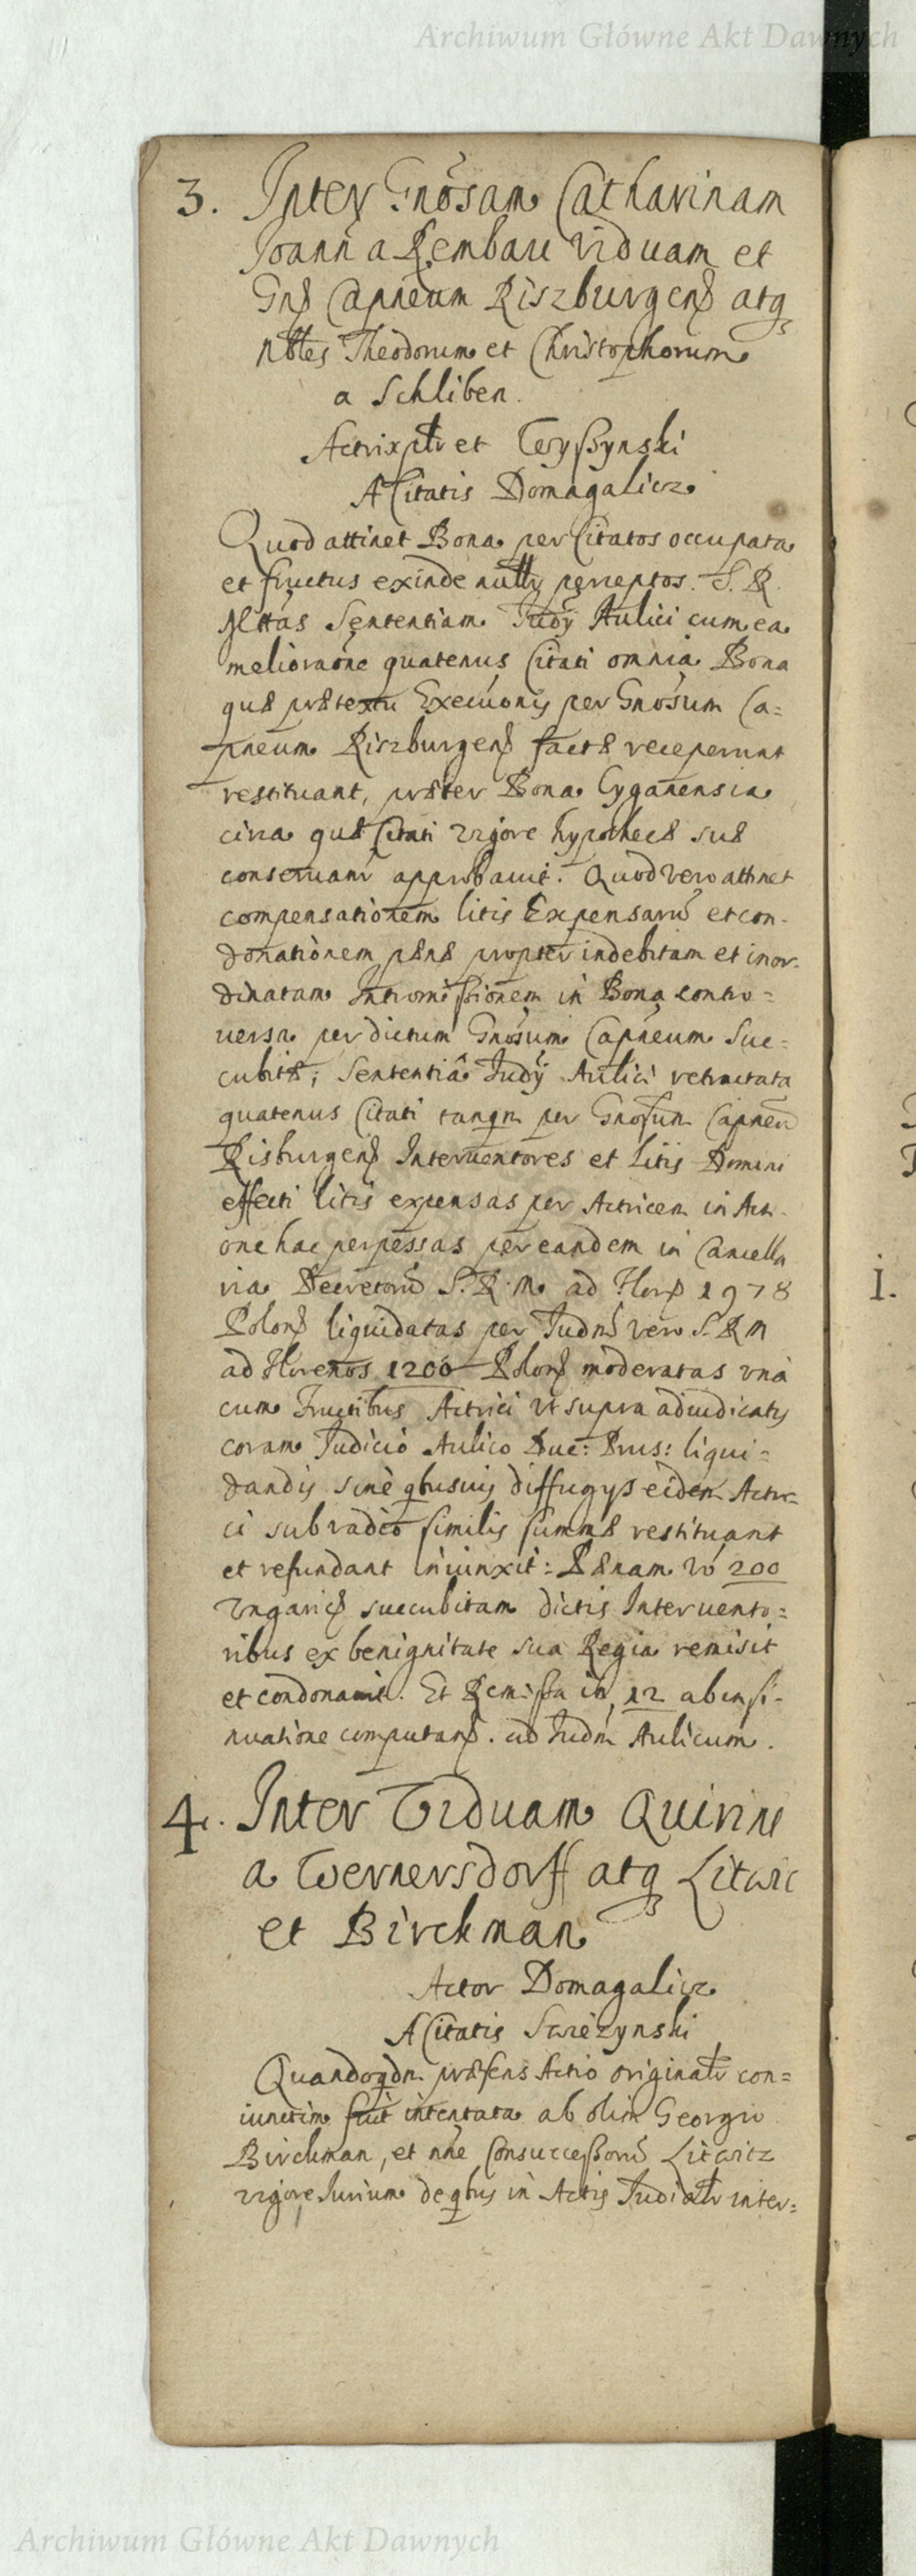 Archiwum Główne Akt Dawnych
3. Inter Gnosam Catharinam
Joann a Rembau viduam et
Gnß Capneum Riszburgenß atq
nbles Theodorum et Christophorum
a Schliben.
Actrix ptr et Wyssynski
A Citatis Domagalicz
Quod attinet Bona per Citatos occupata
et fructus exinde nullr perceptos. S. R.
Mttas Sententiam Judÿ Aulici cum ea
melioraone quatenus Citati omnia Bona
quæ prætextu Execuonis per Gnosum Ca=
pneum Riszburgenß factæ receperunt
restituant, præter Bona Cyganensia
circa quæ Citati vigore hypothecæ suæ
conseruantr approbauit. Quod vero attinet
compensationem litis Expensarū et con-
donationem pænæ propter indebitam et inor-
dinatam Intromissionem in Bona contro=
uersa per dictum Gnosum Capneum Suc=
cubitæ; Sententiâ Judÿ Aulici retractata
quatenus Citati tanqm per Gnosum Capneū
Risburgenß Interuentores et Litis Domini
effecti litis expensas per Actricem in Acti-
one hac perpessas per eandem in Cancella
ria Decretorū S. R. M. ad Florß 1978
Polonß liquidatas per Judm vero S. R M
ad Florenos 1200 Polonß moderatas vnà
cum Fructibus Actrici vt supra adiudicatis
coram Judicio Aulico Duc: Prus: liqui=
dandis sinè qbusuis diffugÿs eidem Actri=
ci sub vadio similis summæ restituant
et refundant iniunxit: Pænam vo 200
Vngaricß succubitam dictis Interuento=
ribus ex benignitate sua Regia remisit
et condonauit. Et Remissa in 12 ab insi-
nuatione computanß. ad Judm Aulicum.
4. Inter Viduam Quirini
a Wernersdorff atq Litwic
et Birckman
Actor Domagalicz
A Citatis Swiezynski
Quandoqdm præsens Actio originaltr con=
iunctim fuit intentata ab olim Georgio
Birckman, et nne Consuccessorū Litwitz
vigore Jurium de qbus in Actis Judialtr inter=
1.
Archiwum Główne Akt Dawnych